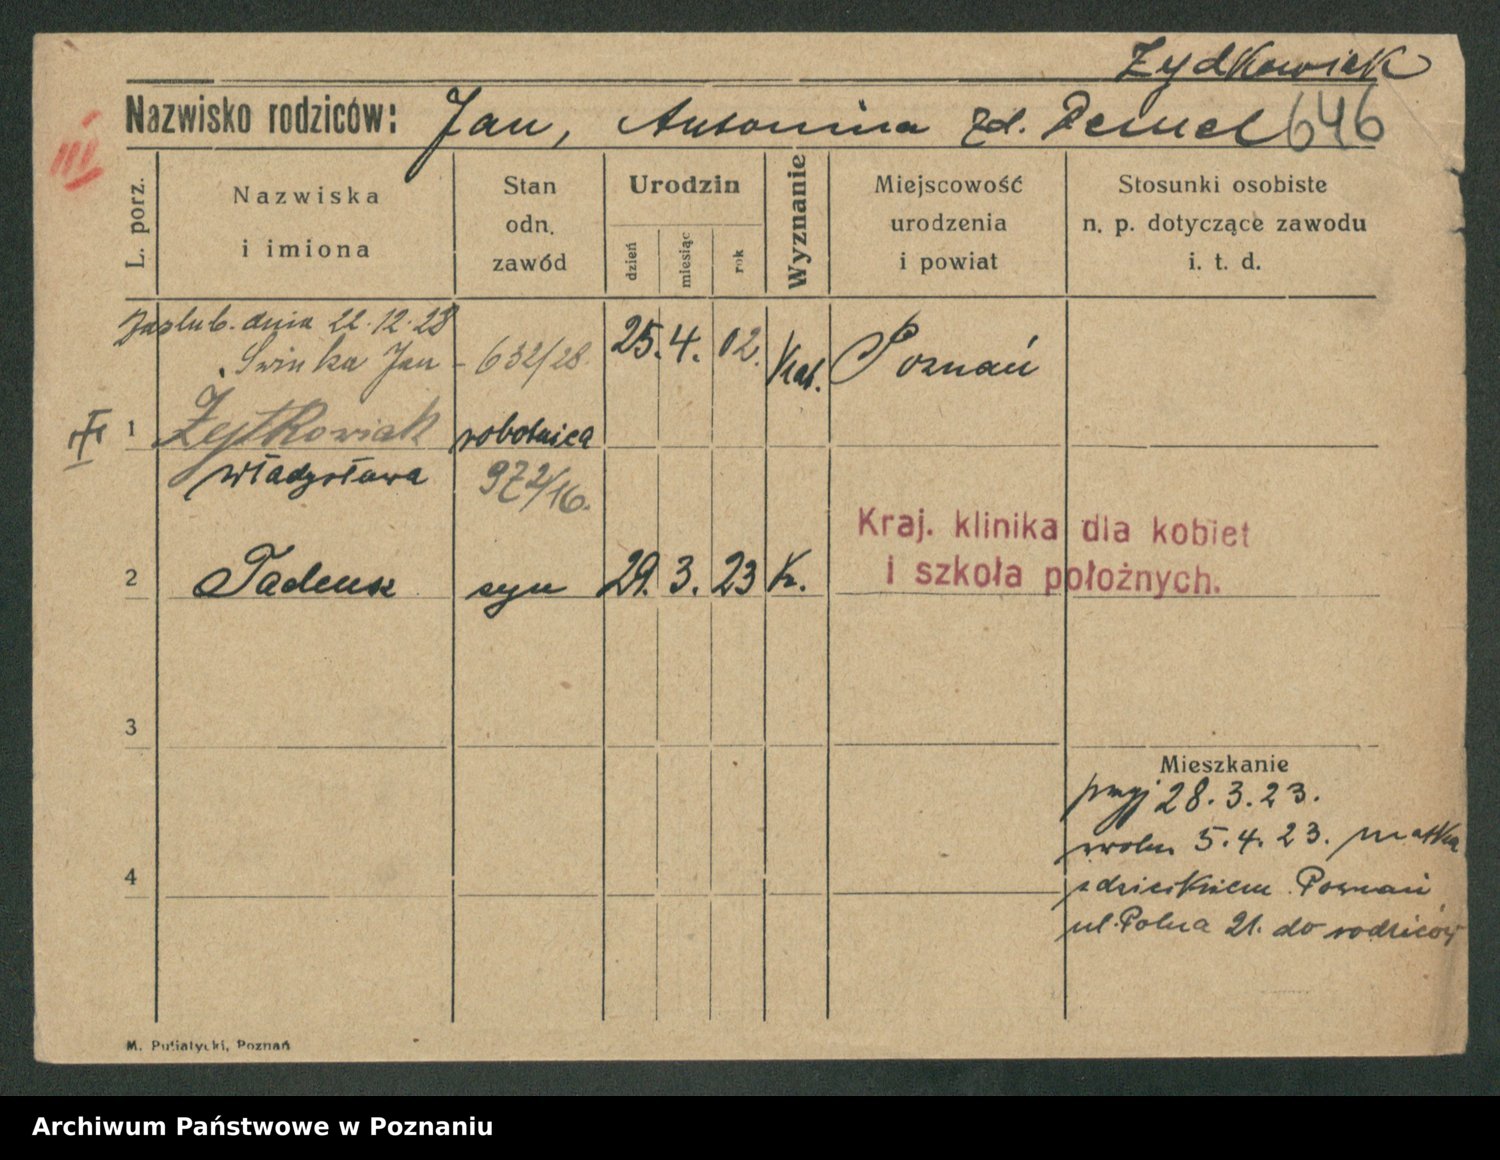 Żydkowiak
Nazwisko rodziców: Jan, Antonina zd. Demel 646
III
L. porz.
Nazwiska i imiona
Stan odn. zawód
Urodzin
dzień
miesiąc
rok
Wyznanie
Miejscowość urodzenia i powiat
Stosunki osobiste n. p. dotyczące zawodu i. t. d.
zaślub. dnia 22.12.28
Swinka Jan - 632/28.
25. 4. 02. Kat. Poznań
1 Żydkowiak robotnica
Władysława 972/16.
Kraj. klinika dla kobiet
i szkoła położnych.
2 Tadeusz syn 29. 3. 23 K.
3
Mieszkanie
przyj 28.3.23.
5.4.23. matka
4
z dzieckiem Poznań
ul. Polna 21. do rodziców
M. Putiatycki, Poznań
Archiwum Państwowe w Poznaniu